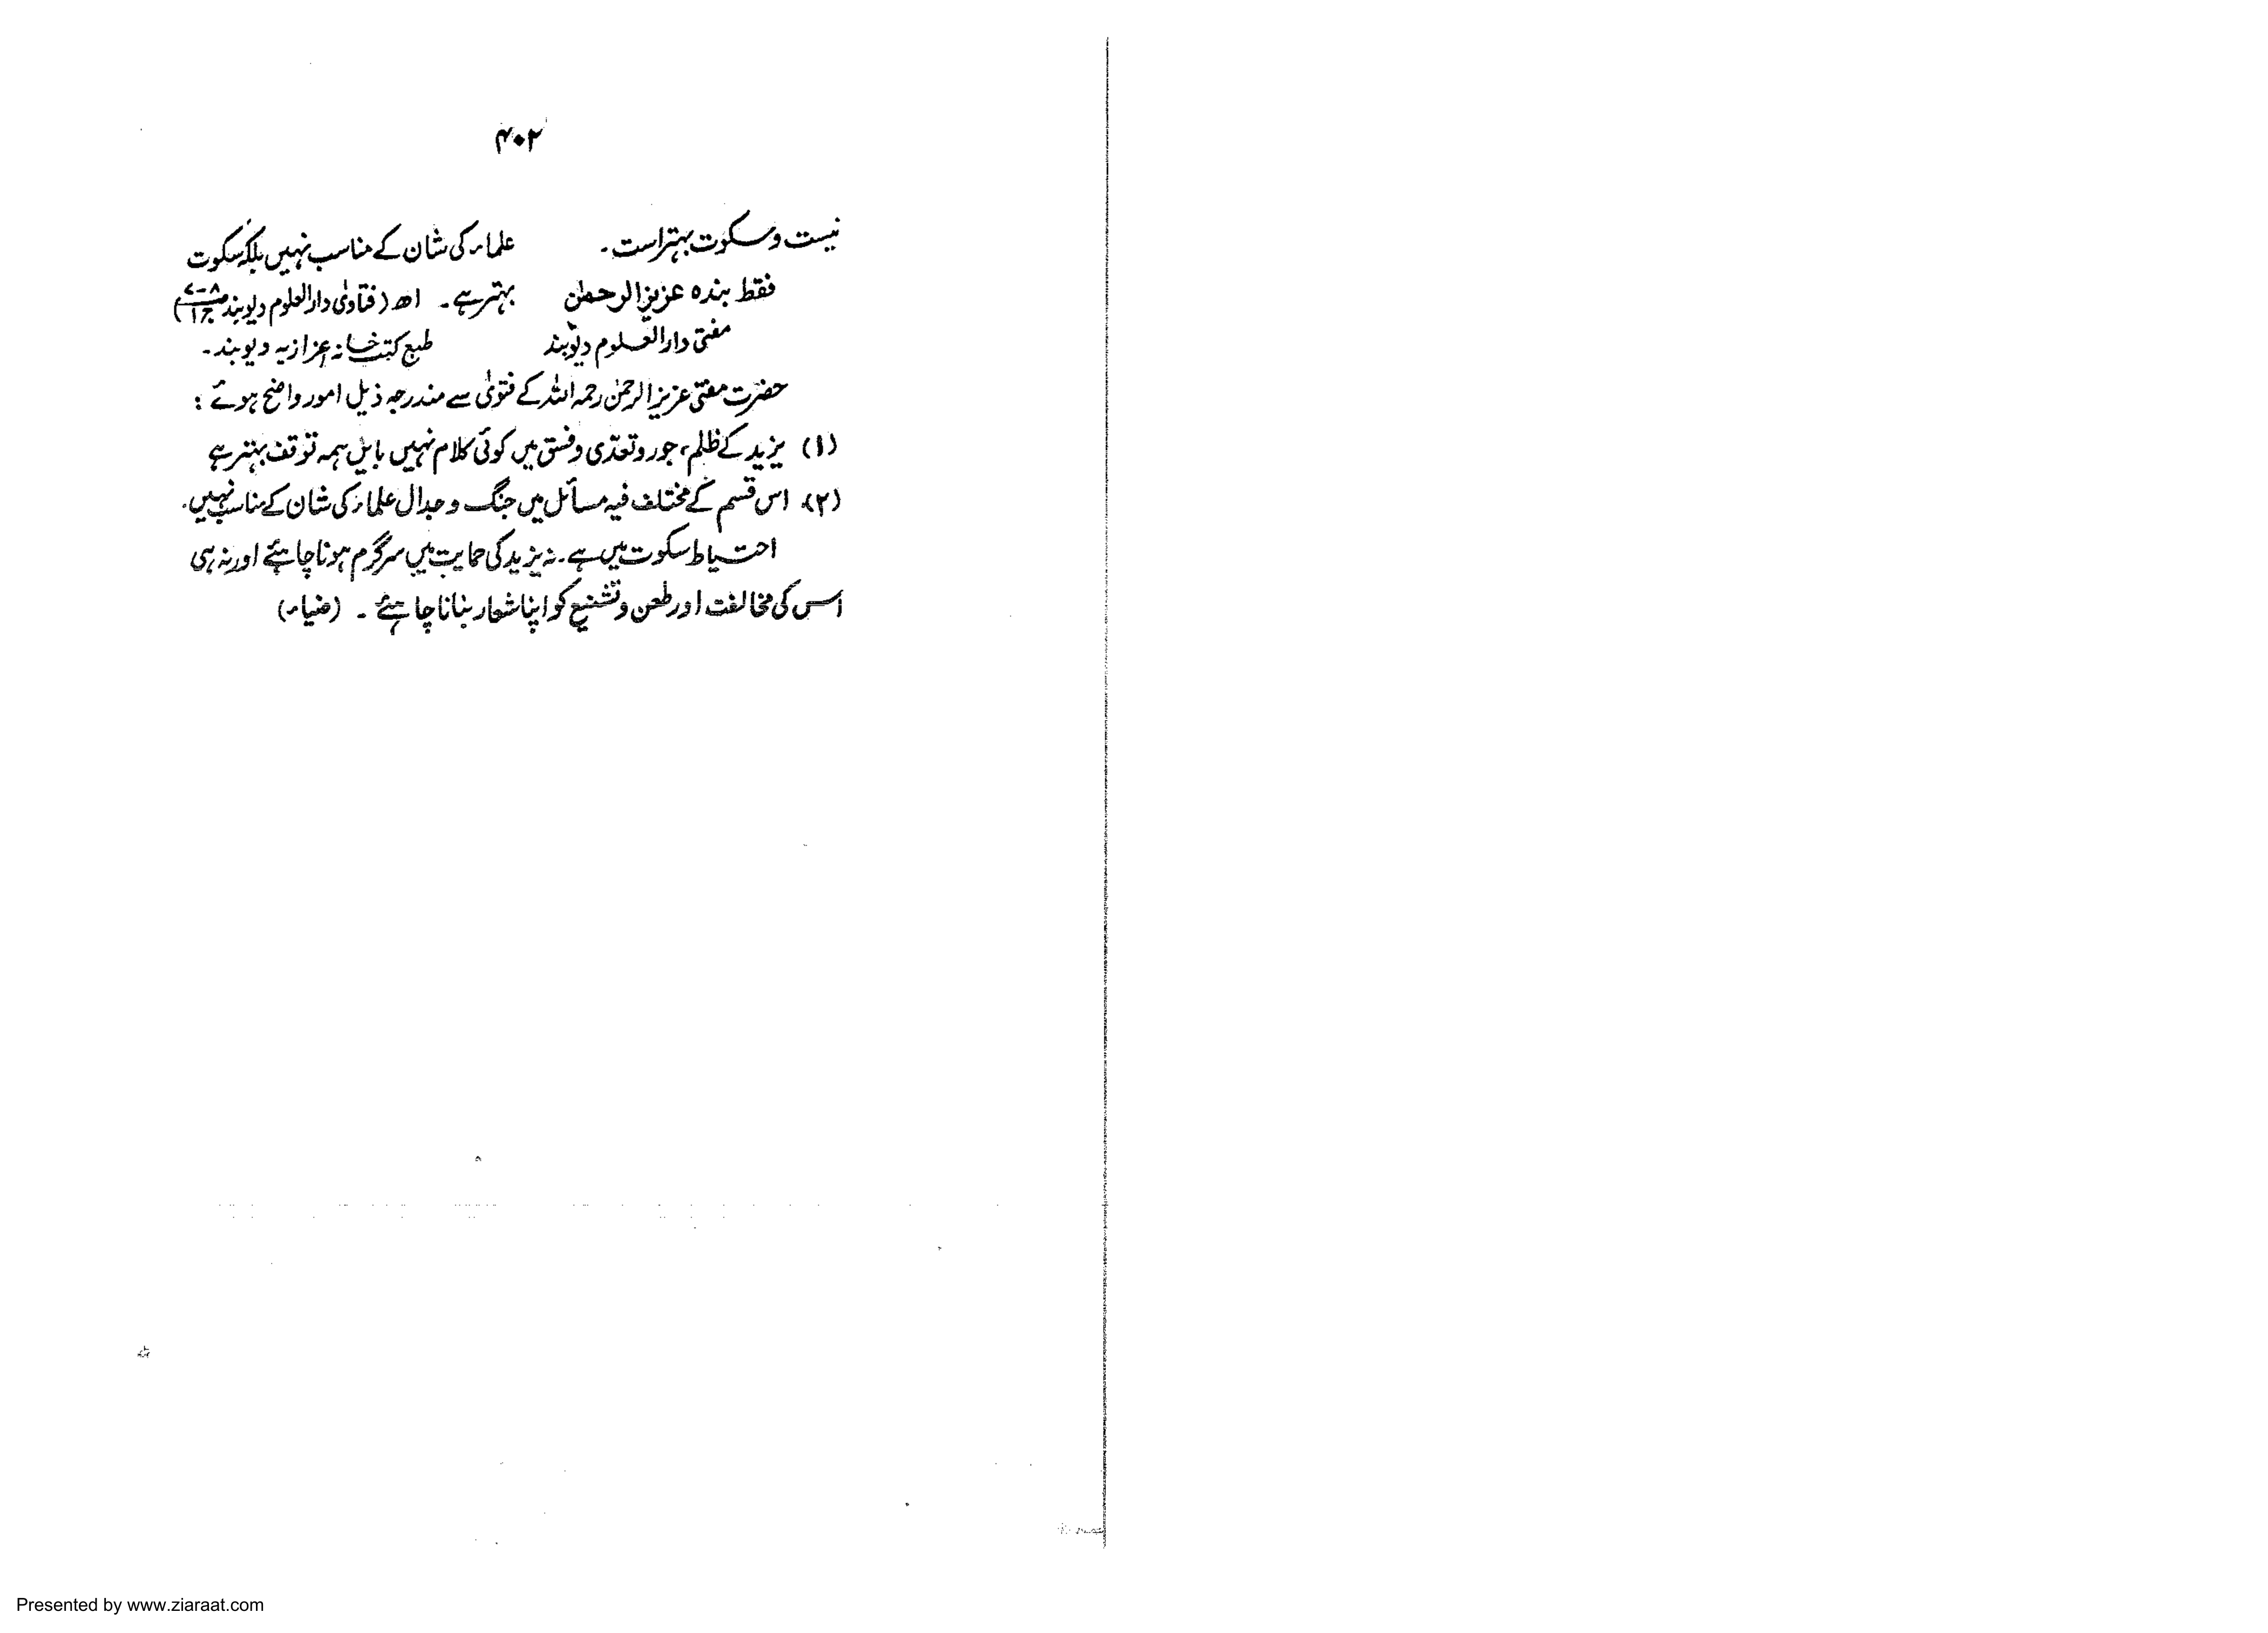 ۴۰۲
نیست و سکوت بہتر است۔ علماء کی شان کے مناسب نہیں بلکہ سکوت
فقط بندہ عزیز الرحمٰن بہتر ہے۔ اھ (فتاویٰ دارالعلوم دیوبند ج۱)
مفتی دارالعلوم دیوبند طبع کتب خانہ اعزازیہ دیوبند۔
حضرت مفتی عزیز الرحمٰن رحمہ اللہ کے فتویٰ سے مندرجہ ذیل امور واضح ہوئے :
(۱) یزید کے ظلم، جور و تعدّی و فسق میں کوئی کلام نہیں بایں ہمہ توقف بہتر ہے
(۲) اس قسم کے مختلف فیہ مسائل میں جنگ و جدال علماء کی شان کے مناسب نہیں۔
احتیاط سکوت میں ہے۔ نہ یزید کی حمایت میں سرگرم ہونا چاہئے اور نہ ہی
اس کی مخالفت اور طعن و تشنیع کو اپنا شعار بنانا چاہئے ۔ (ضیاء)
Presented by www.ziaraat.com